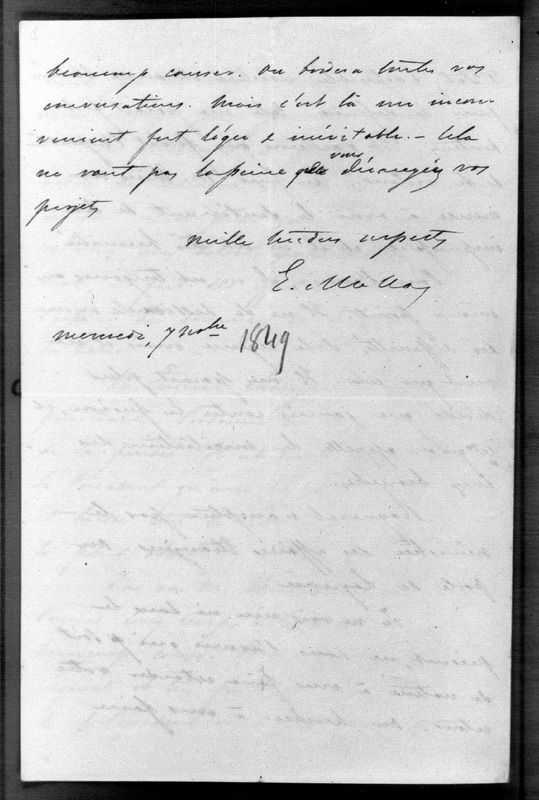 beaucoup causer. On brodera toutes vos
conversations. Mais c'est là un incon-
vénient fort léger & inévitable. - Cela
ne vaut pas la peine de vous déranger vos
projets
mille tendres respects
E.
mercredi, 7 nobre 1849